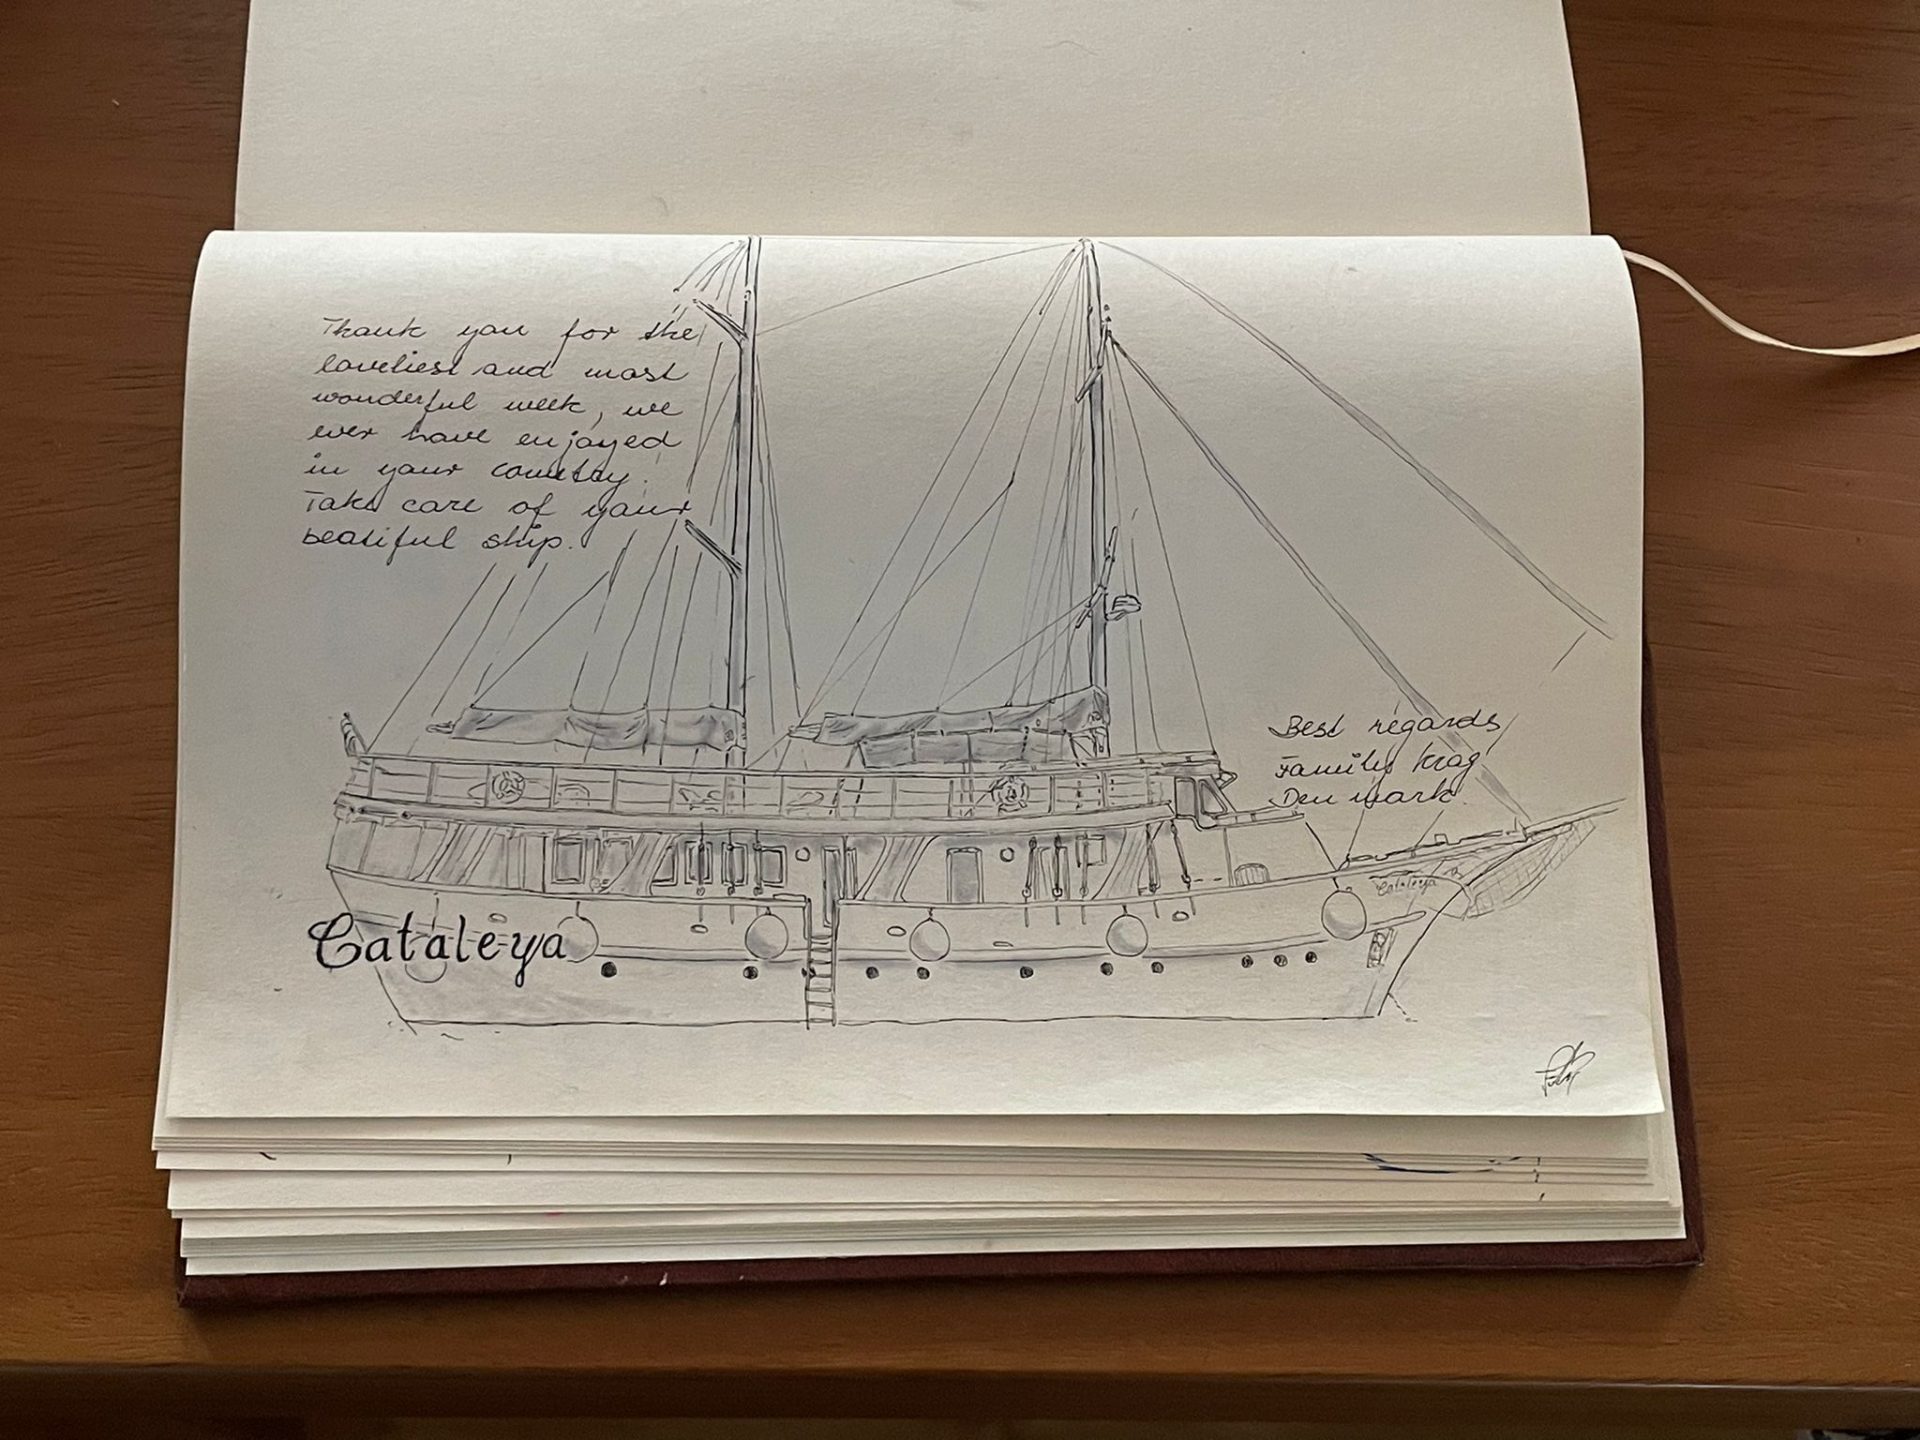 Thank you for the
loveliest and most
wonderful week, we
ever have enjoyed
in your country.
Take care of your
beatiful ship.
Best regards
Family Krag
Denmark.
Cataleya
Cataleya